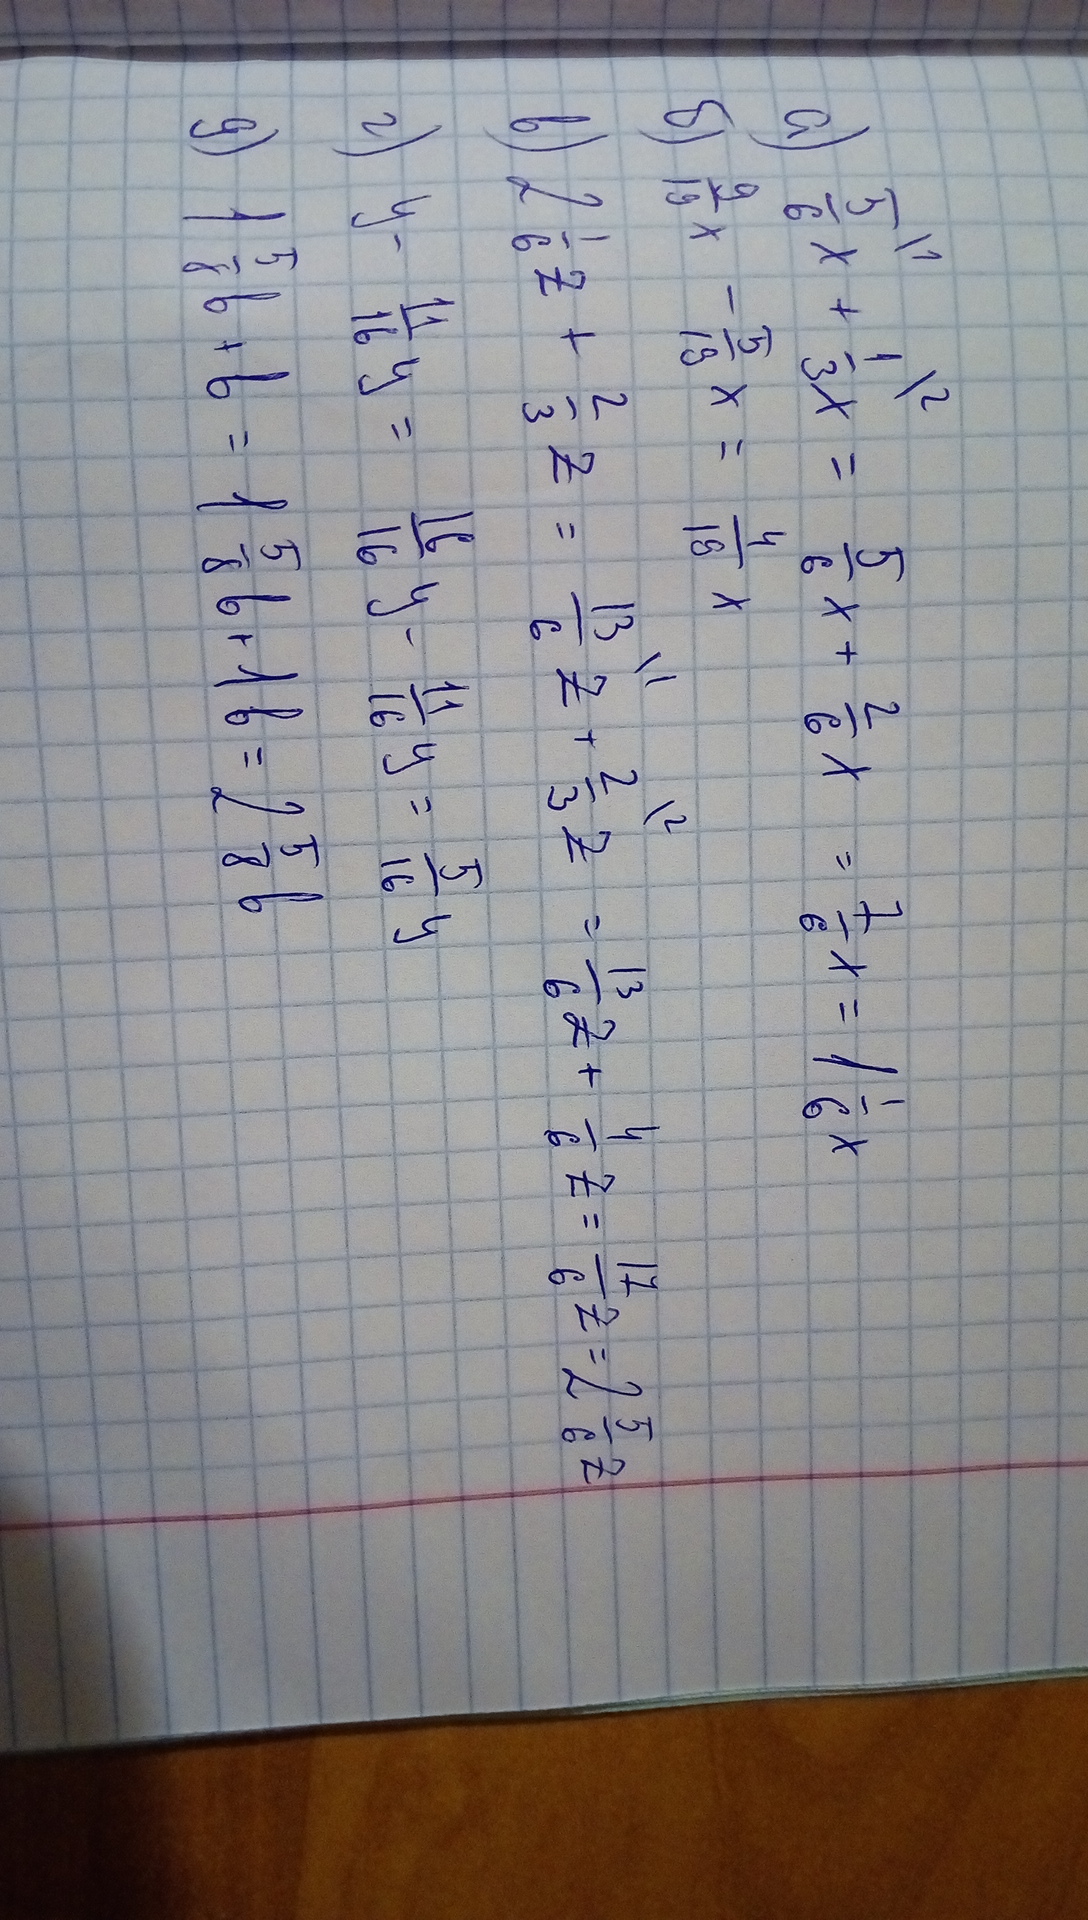 а) 5/6 \1 x + 1/3 \2 x = 5/6 x + 2/6 x = 7/6 x = 1 1/6 x
б) 9/19 x - 5/19 x = 4/19 x
в) 2 1/6 z + 2/3 z = 13/6 \1 z + 2/3 \2 z = 13/6 z + 4/6 z = 17/6 z = 2 5/6 z
г) y - 11/16 y = 16/16 y - 11/16 y = 5/16 y
д) 1 5/8 b + b = 1 5/8 b + 1b = 2 5/8 b